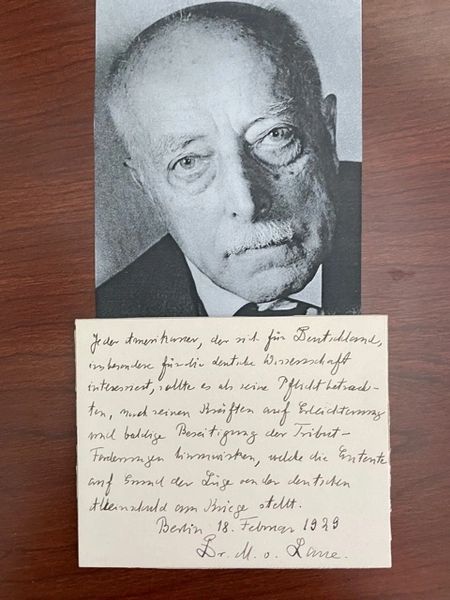 Jeder Amerikaner, der sich für Deutschland,
insbesondere für die deutsche Wissenschaft
interessiert, sollte es als seine Pflicht betrach-
ten, nach seinen Kräften auf Erleichterung
und baldige Beseitigung der Tribut-
Forderungen hinzuwirken, welche die Entente
auf Grund der Lüge von der deutschen
Alleinschuld am Kriege stellt.
Berlin 18. Februar 1929
Dr. M. v. Laue.